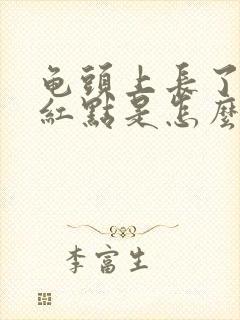 龟頭上長了
紅點是怎麼
李富生